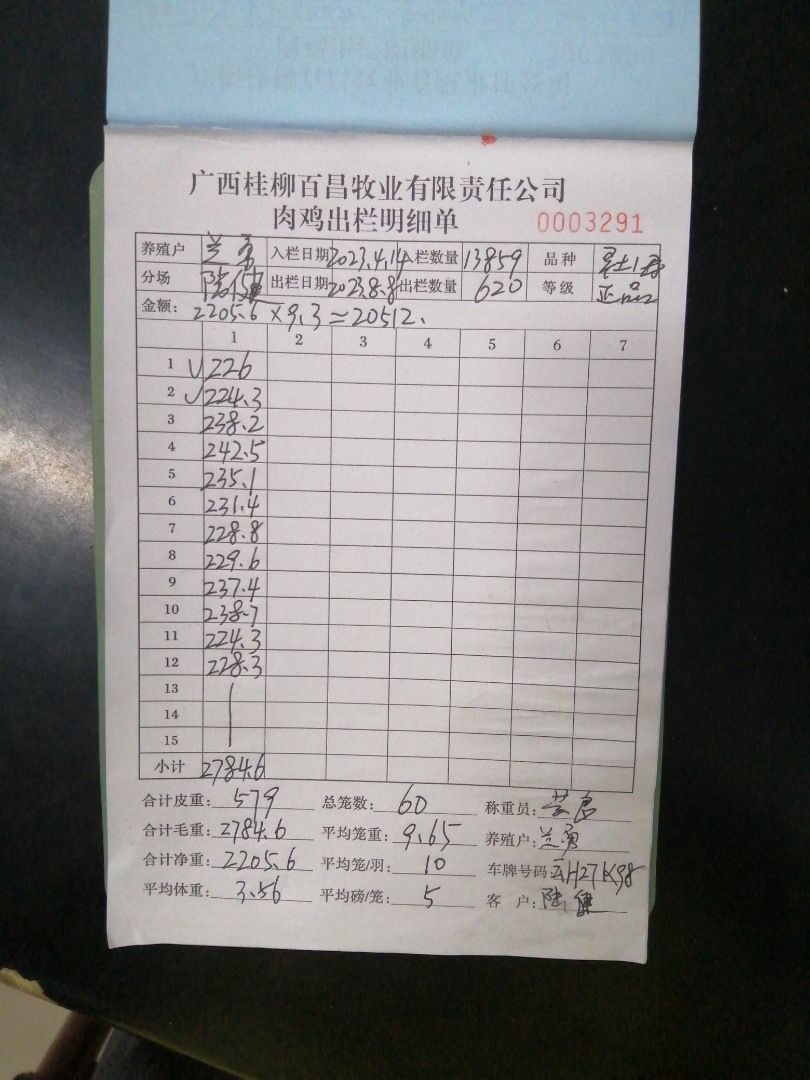 广西桂柳百昌牧业有限责任公司
肉鸡出栏明细单 0003291
养殖户 兰勇 入栏日期 2023.4.14 入栏数量 13859 品种
分场 陆健 出栏日期 2023.8.8 出栏数量 620 等级 正品
金额: 2205.6×9.3=20512.
1 2 3 4 5 6 7
1 √ 226
2 √ 224.3
3 238.2
4 242.5
5 235.1
6 231.4
7 228.8
8 229.6
9 237.4
10 238.7
11 224.3
12 228.3
13
14
15
小计 2784.6
合计皮重: 579 总笼数: 60 称重员:
合计毛重: 2784.6 平均笼重: 9.65 养殖户: 兰勇
合计净重: 2205.6 平均笼/羽: 10 车牌号码: 云H27K98
平均体重: 3.56 平均磅/笼: 5 客 户: 陆健